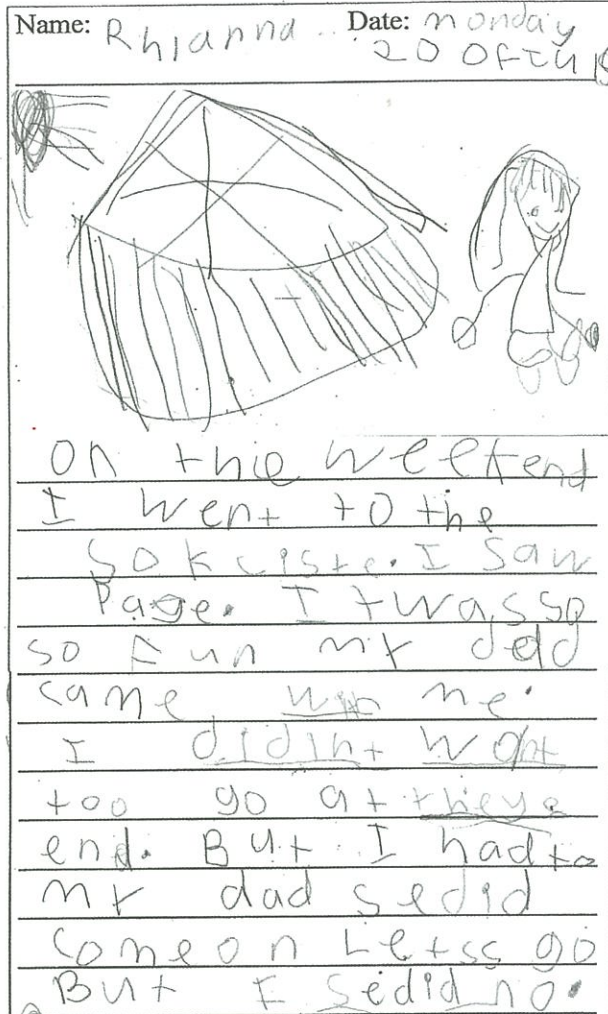 Name: Rhianna Date: monday
20 OFIU 15
on thie weekend
I went to the
Sokciste. I saw
Page. I twas so
so Fun my dad
came with me.
I didint want
too go at they
end. But I had to
my dad sedid
come on Letss go
But I sedid no.